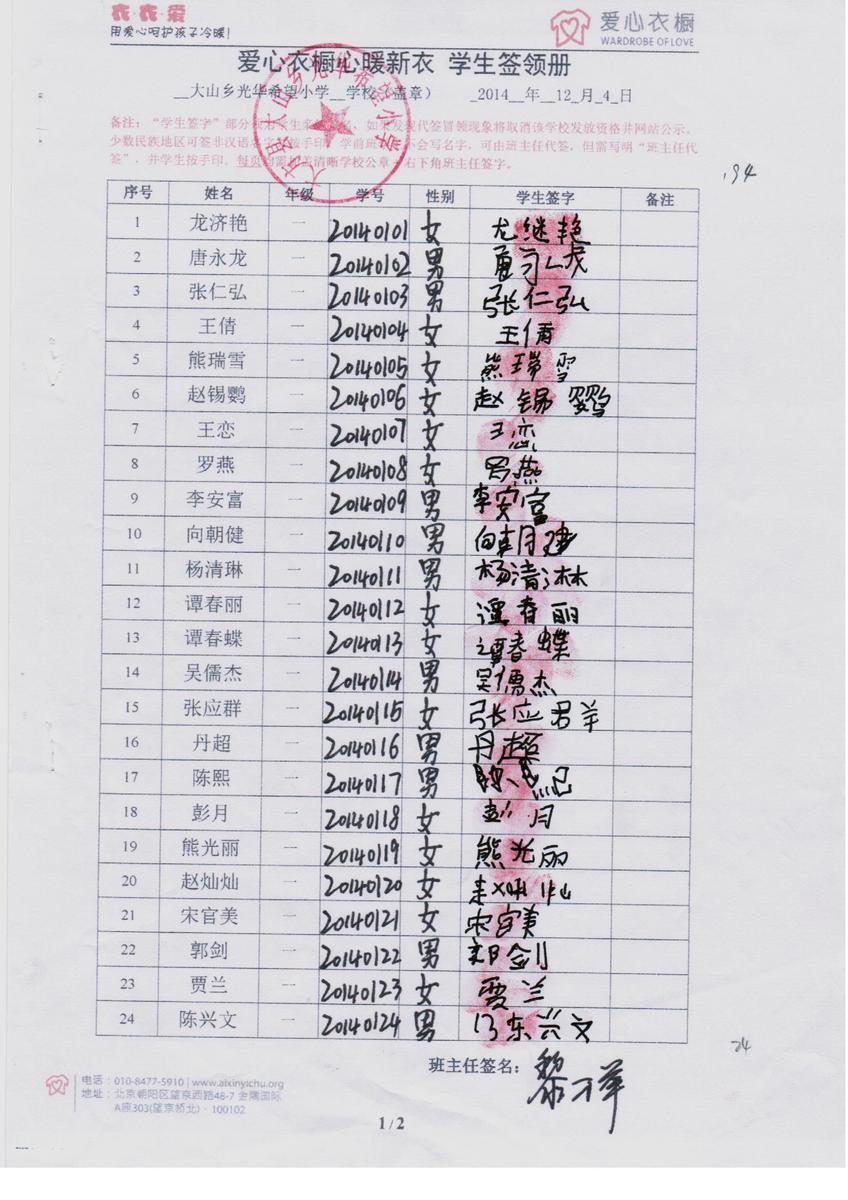 衣·衣·爱
用爱心呵护孩子冷暖!
爱心衣橱
WARDROBE OF LOVE
爱心衣橱心暖新衣 学生签领册
__大山乡光华希望小学__学校（盖章） _2014__年__12_月_4_日
备注：“学生签字”部分 学生 如果发现代签冒领现象将取消该学校发放资格并网站公示。
少数民族地区可签非汉语名字 按手印 学前班 不会写名字，可由班主任代签，但需写明“班主任代
签”，并学生按手印。每页 需 盖清晰学校公章 右下角班主任签字。
194
序号 姓名 年级 学号 性别 学生签字 备注
1 龙济艳 一 20140101 女 龙继艳
2 唐永龙 一 20140102 男
3 张仁弘 一 20140103 男 张仁弘
4 王倩 一 20140104 女 王倩
5 熊瑞雪 一 20140105 女 熊瑞雪
6 赵锡鹦 一 20140106 女 赵锡鹦
7 王恋 一 20140107 女 王恋
8 罗燕 一 20140108 女 罗燕
9 李安富 一 20140109 男 李安富
10 向朝健 一 20140110 男 向朝建
11 杨清琳 一 20140111 男 杨清淋
12 谭春丽 一 20140112 女 谭春丽
13 谭春蝶 一 20140113 女 谭春蝶
14 吴儒杰 一 20140114 男 吴儒杰
15 张应群 一 20140115 女 张应群
16 丹超 一 20140116 男 丹超
17 陈熙 一 20140117 男 陈熙
18 彭月 一 20140118 女 彭月
19 熊光丽 一 20140119 女 熊光丽
20 赵灿灿 一 20140120 女 赵灿灿
21 宋官美 一 20140121 女 宋官美
22 郭剑 一 20140122 男 郭剑
23 贾兰 一 20140123 女 贾兰
24 陈兴文 一 20140124 男 陈兴文
24
班主任签名：
电话：010-8477-5910 | www.aixinyichu.org
地址：北京朝阳区望京西路48-7 金隅国际
A座303(望京桥北) · 100102
1 / 2